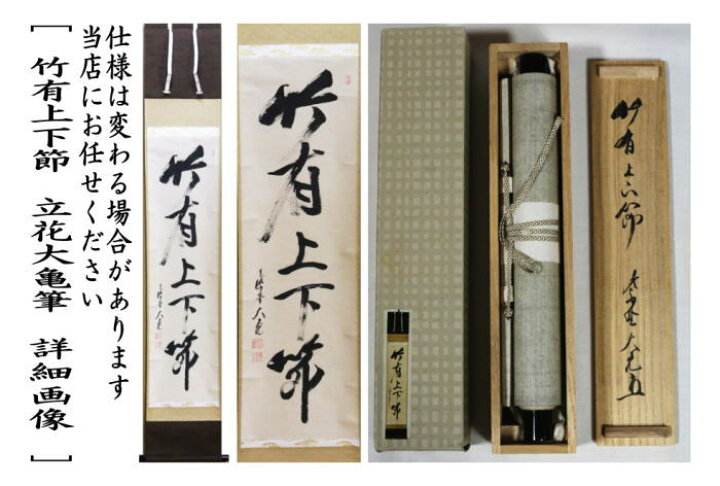 仕様は変わる場合があります
当店にお任せください
[ 竹有上下節 立花大亀筆 詳細画像 ]
竹有上下節
竹有上下節
竹有上下節
竹有上下節